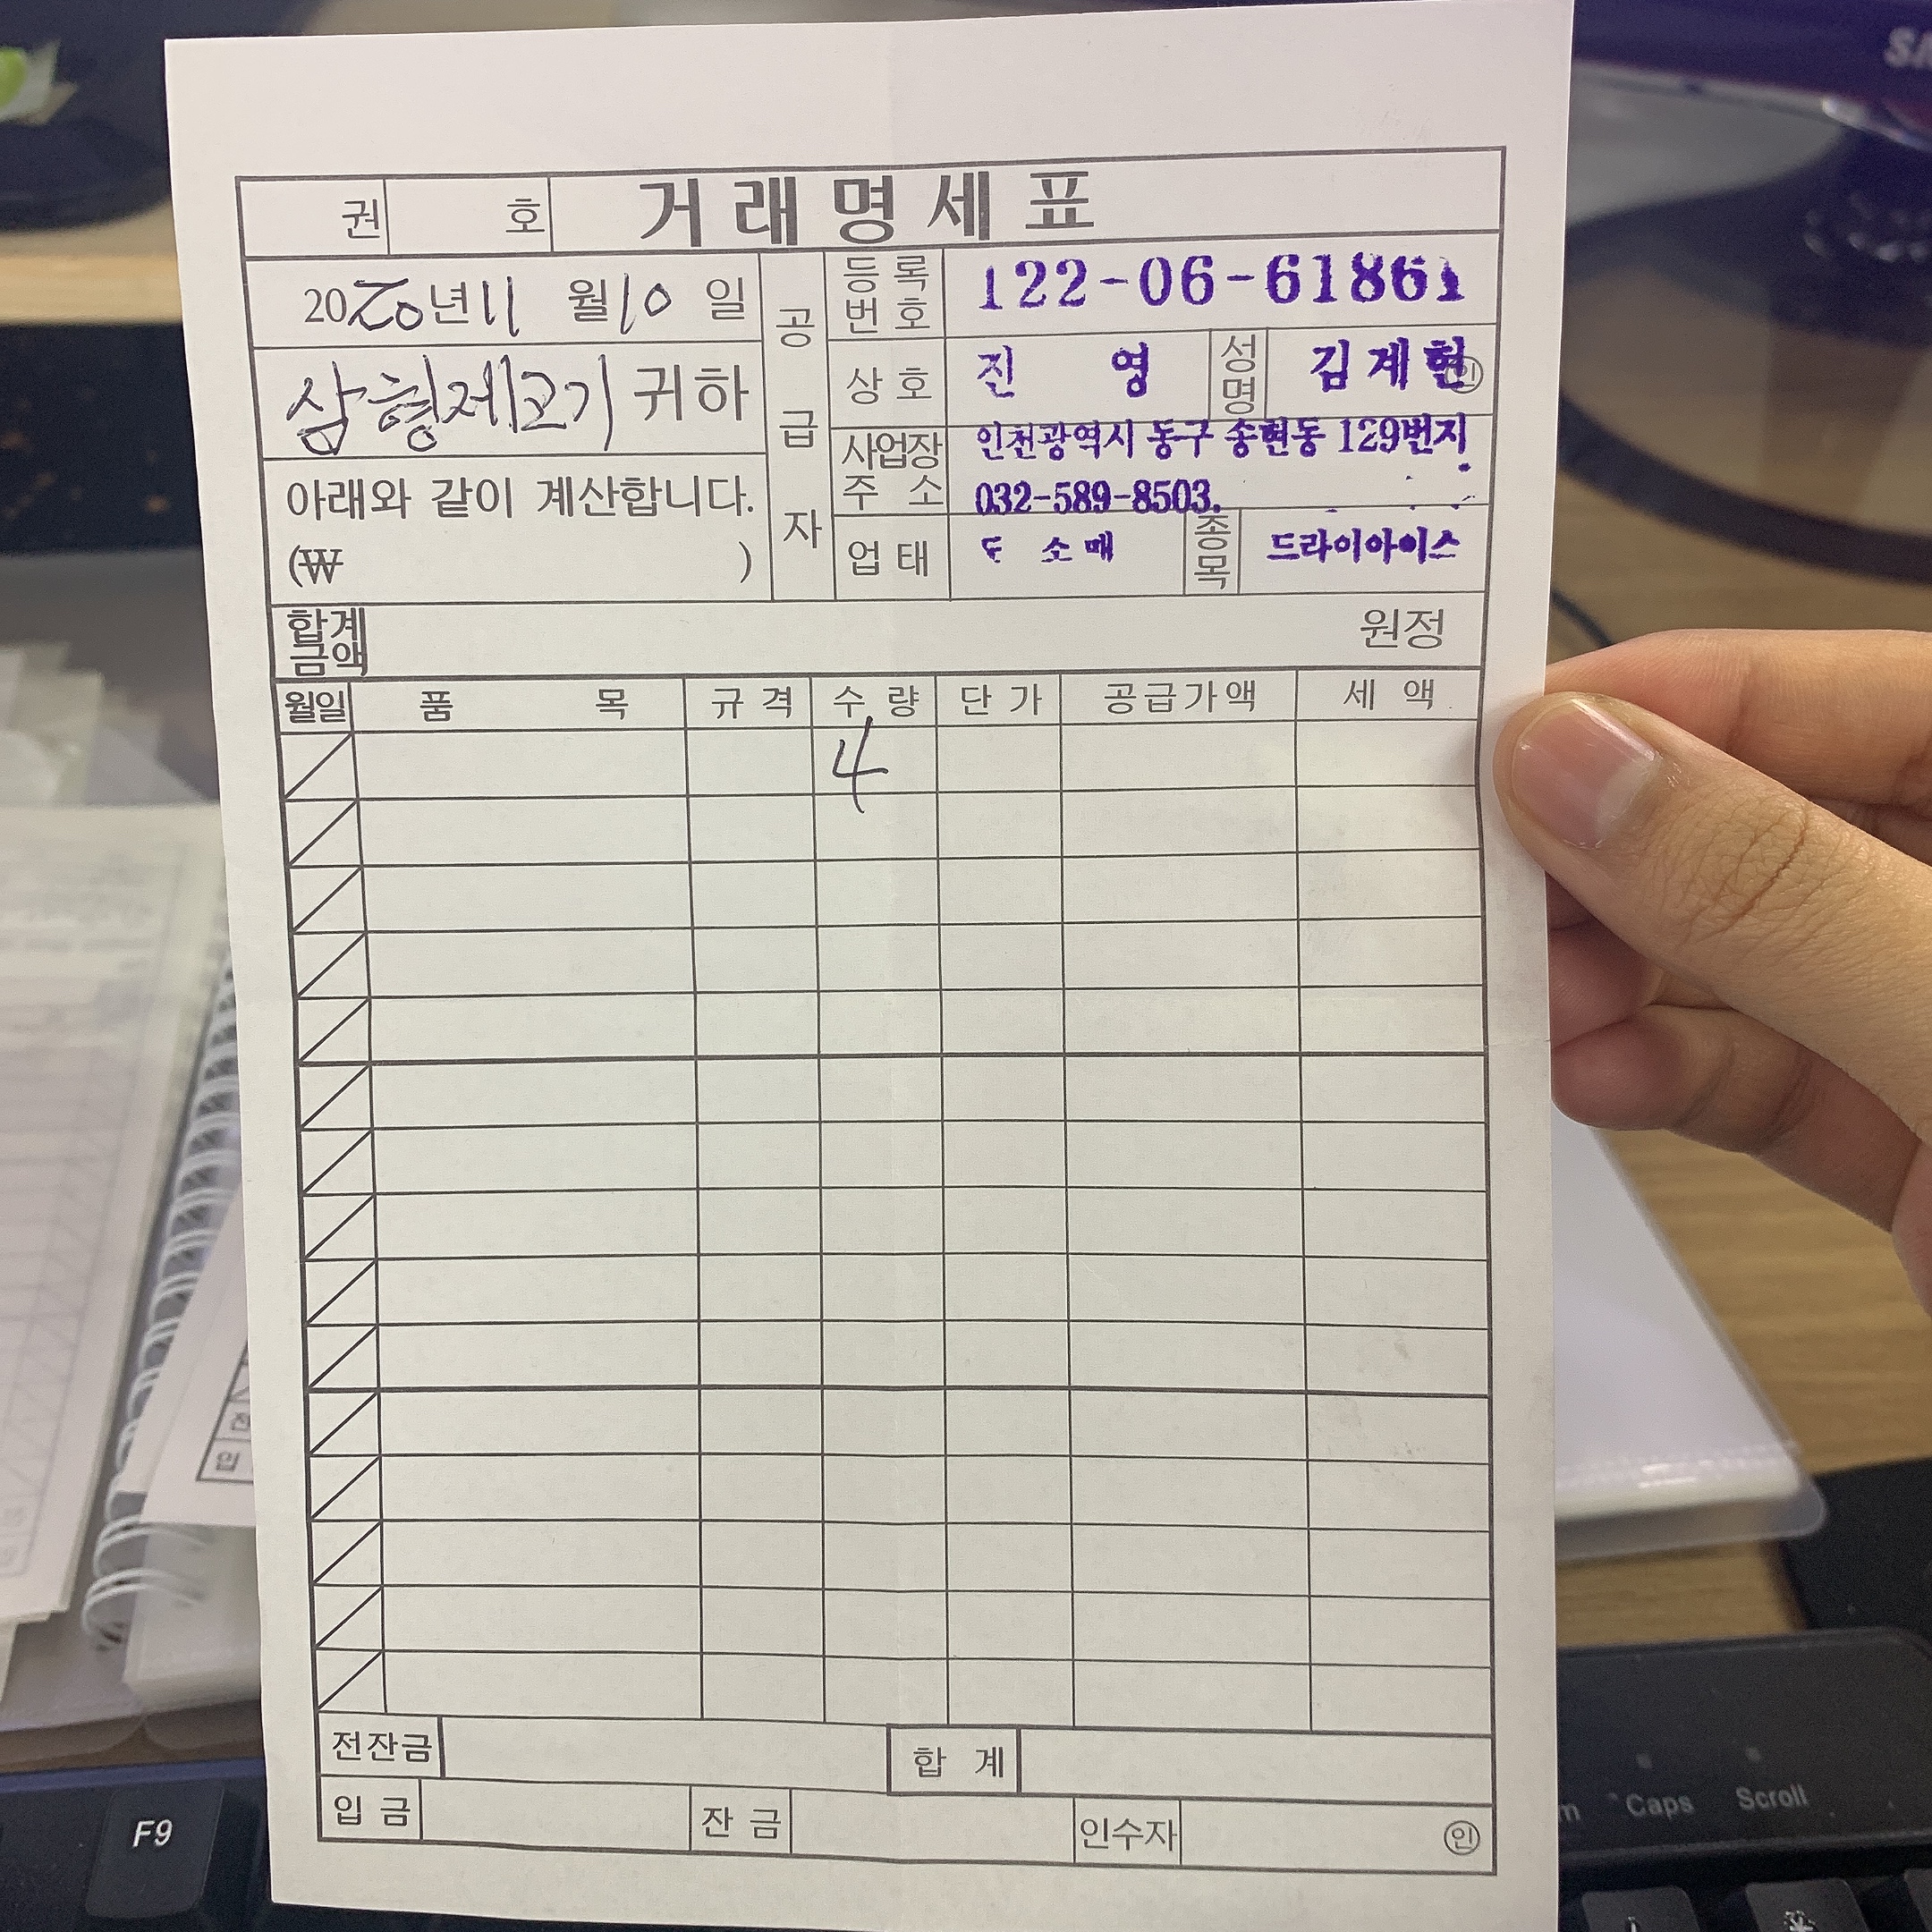 권 호 거래명세표
2020년 11 월 10 일
삼형제고기 귀하
아래와 같이 계산합니다.
(₩ )
공급자
등록번호 122-06-61861
상호 진 영 성명 김계현 ㊞
사업장주소 인천광역시 동구 송현동 129번지
032-589-8503.
업태 소매 종목 드라이아이스
합계금액 원정
월일 품 목 규격 수량 단가 공급가액 세액
4
전잔금 합 계
입금 잔금 인수자 ㊞
F9
Caps Scroll